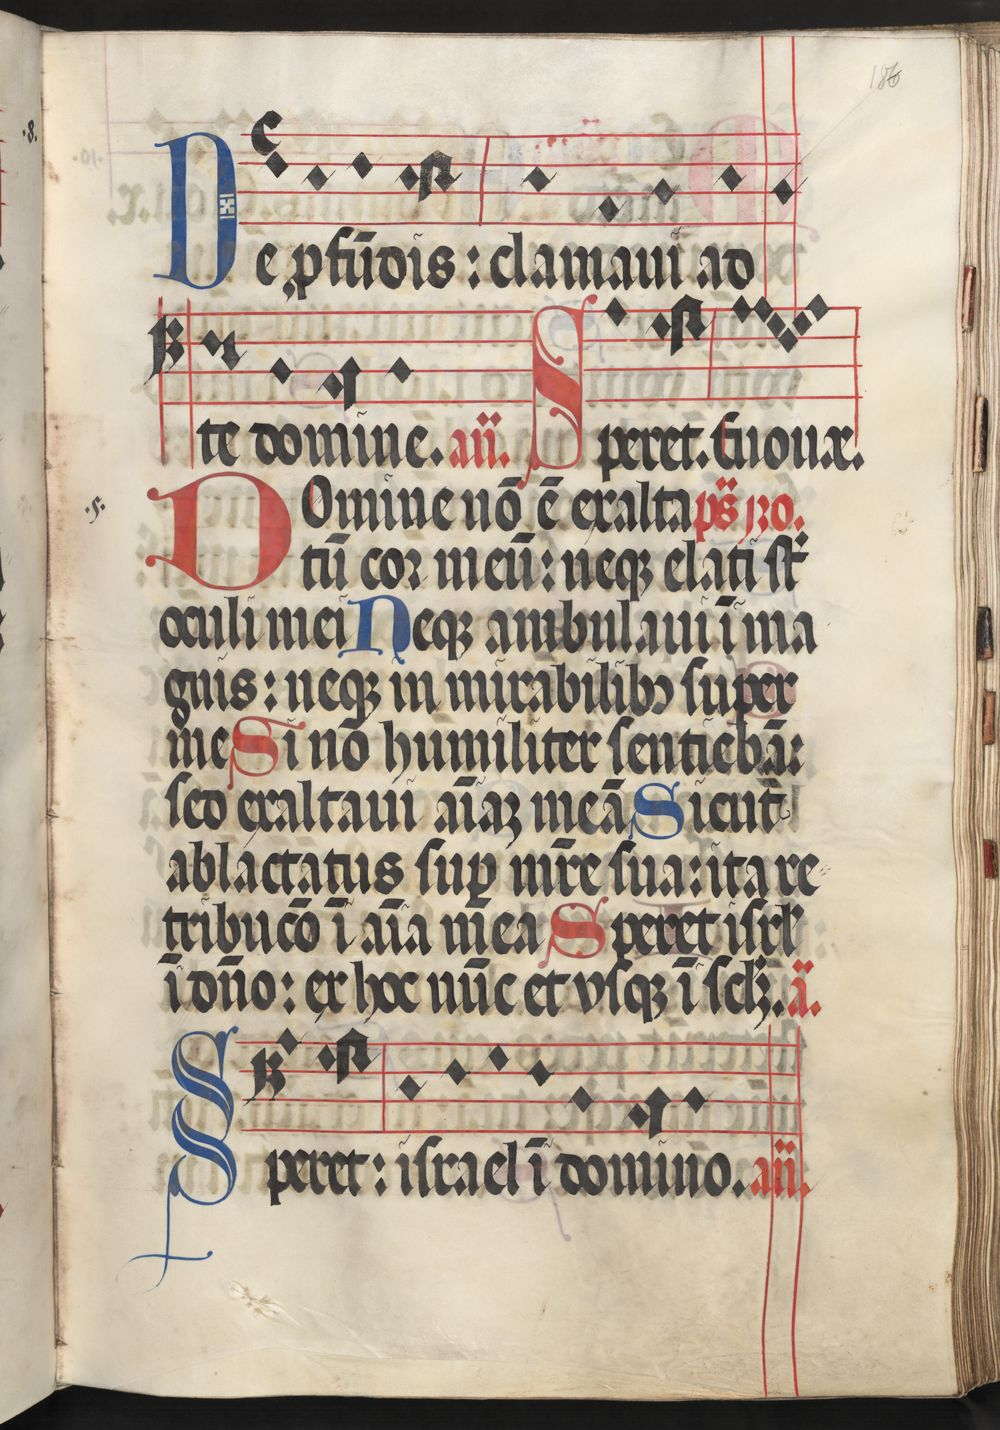 186
·8.
De ꝓfūdis : clamaui ad
te domine. añ. Speret. Euouae.
·5.
DOmine nō ē exalta ps̄ 130.
tū cor meū : neqꝫ elati st̄
oculi mei Neqꝫ ambulaui ī ma
gnis : neqꝫ in mirabilibꝫ super
me Si nō humiliter sentiebā :
sed exaltaui aīaꝫ meā Sicut
ablactatus sup̄ mr̄e sua : ita re
tribucō ī aīa mea Speret isrl̄
ī dn̄o : ex hoc nūc et vsqꝫ ī sclꝫ. ā.
Speret : israel ī domino. añ.